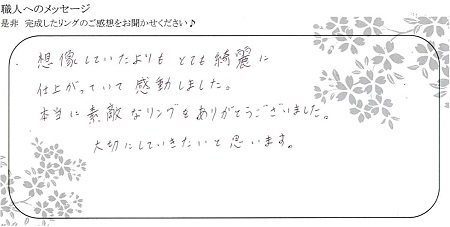 職人へのメッセージ
是非 完成したリングのご感想をお聞かせください♪
想像していたよりも とても綺麗に
仕上がっていて 感動しました。
本当に素敵なリングをありがとうございました。
大切にしていきたいと思います。